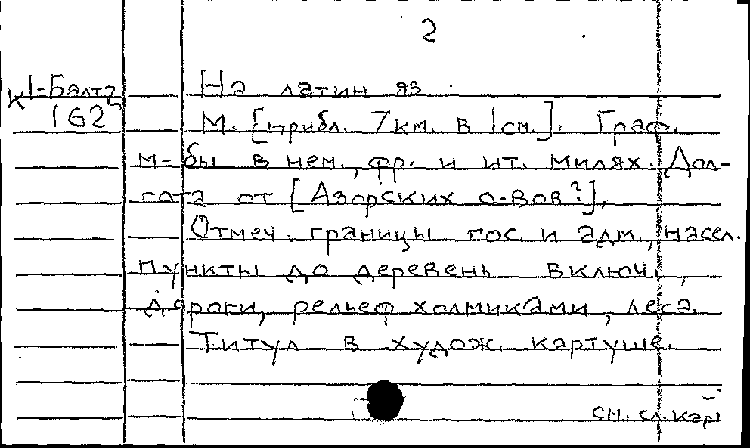 2
К1-Балт
162
На латин яз.
М. [прибл. 7км. в 1см.]. Граф.
м-бы в нем., фр. и ит. милях. Дол-
гота от [Азорских о-вов?].
Отмеч. границы гос. и адм., насел.
пункты до деревень включ.,
дороги, рельеф холмиками, леса.
Титул в худож. картуше.
см. сл. кар